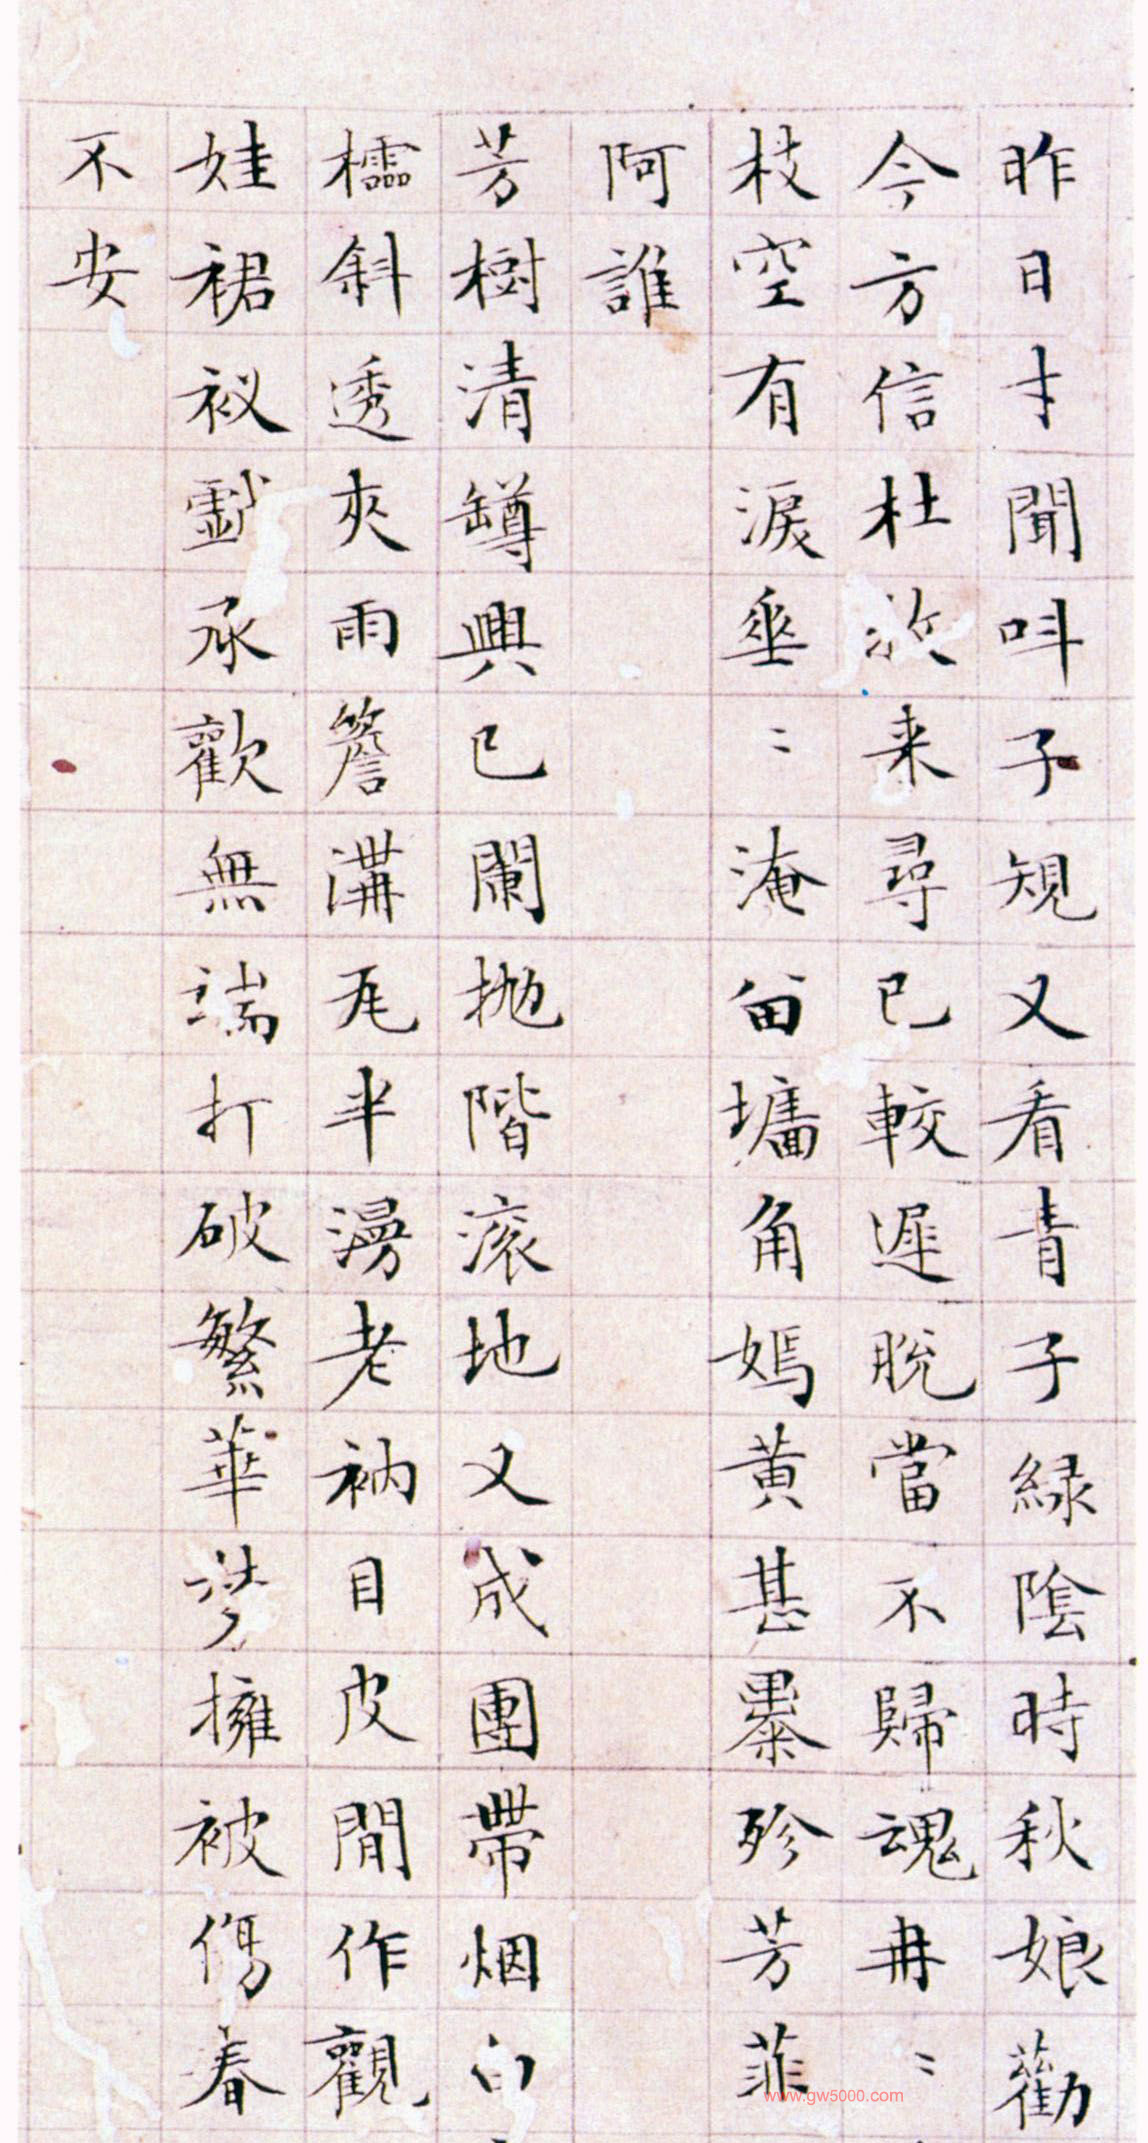 昨日才聞叫子規又看青子緑陰時秋娘勸
今方信杜牧来尋已較遲脫當不歸魂冉〻
枝空有淚垂〻淹留墻角嫣黄甚暴殄芳菲
阿誰
芳樹清罇興已闌抛階滚地又成團帶烟白
櫺斜透夾雨簷溝瓦半漫老衲目皮閒作觀
娃裙衩戲承歡無端打破繁華夢擁被傷春
不安
www.gw5000.com